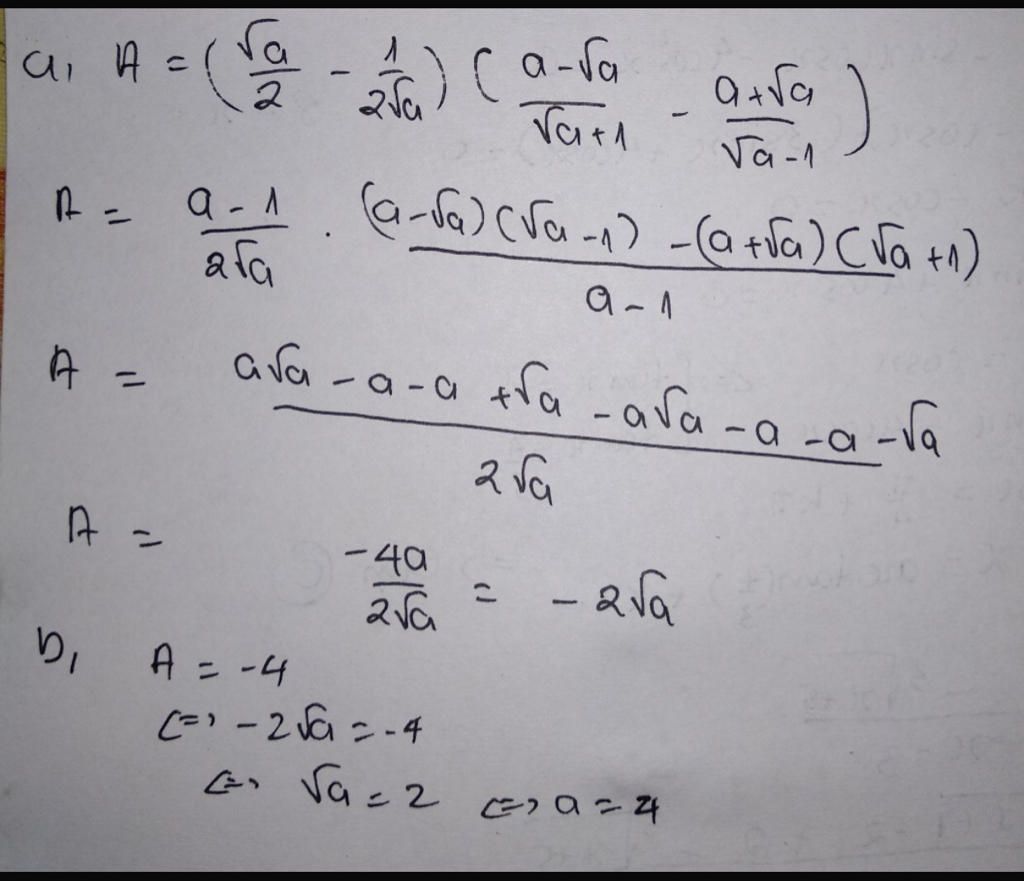 a, A = (√a/2 - 1/2√a) (a-√a/√a+1 - a+√a/√a-1)
A = a-1/2√a . (a-√a)(√a-1) -(a+√a)(√a+1)/a-1
A = a√a - a - a + √a - a√a - a - a - √a/2√a
A = -4a/2√a = -2√a
b, A = -4
<=> -2√a = -4
<=> √a = 2 <=> a = 4